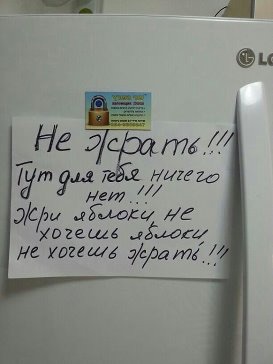 LG
Не жрать!!!
Тут для тебя ничего
нет!!!
жри яблоки, не
хочешь яблоки,
не хочешь жрать!!!